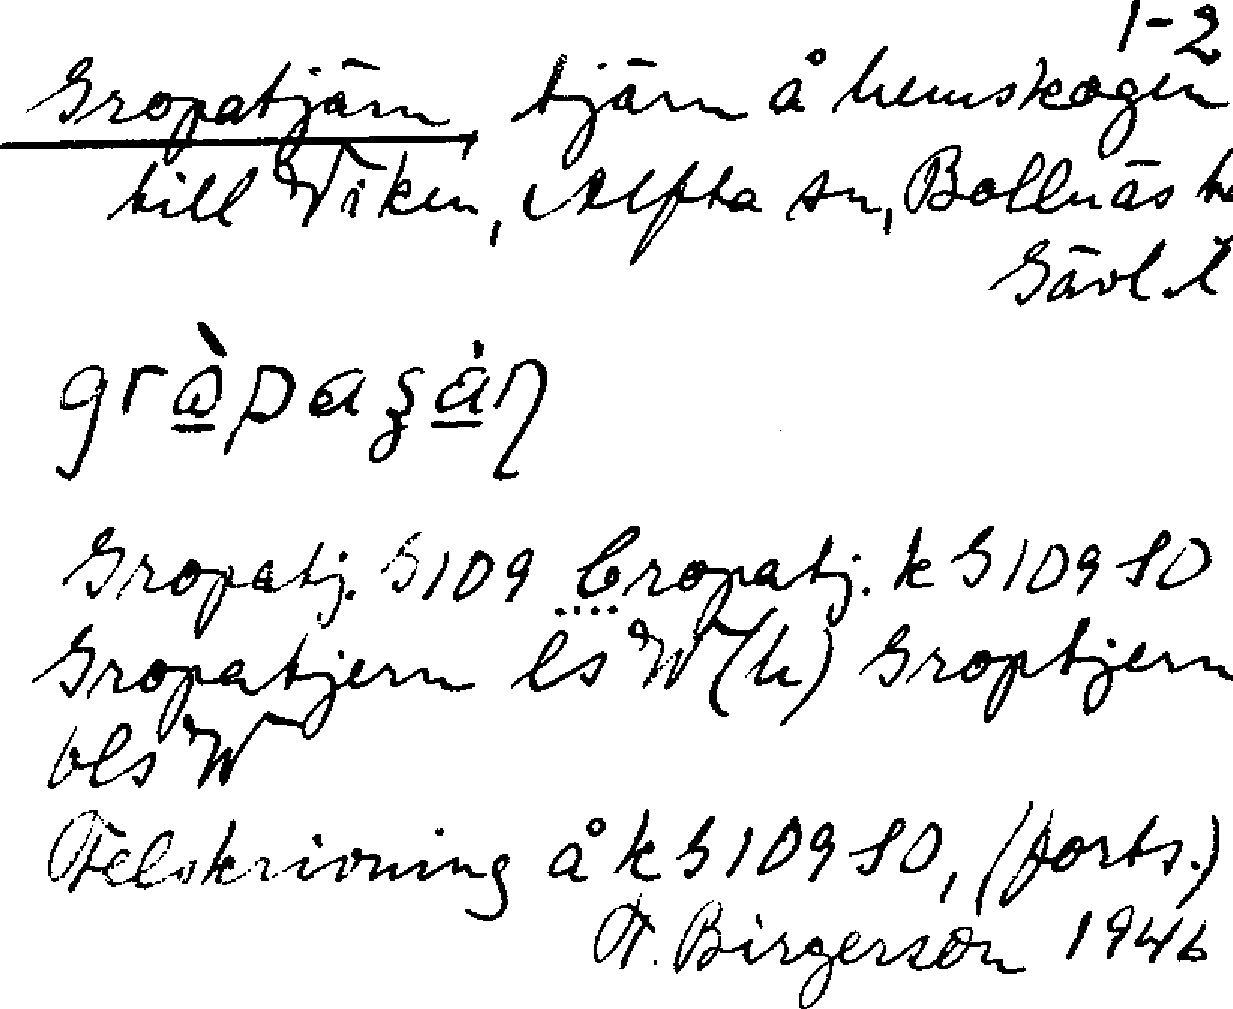 1-2
Gropatjärn, tjärn å hemskogen
till Viken, Alfta sn, Bollnäs
Gävl. l
Gropatj. G109 Cropatj. k G109 SO
Gropatjern ls W (h) Groptjern
bls W
Felskrivning å k G109 SO, (forts.)
F. Birgerson 1946